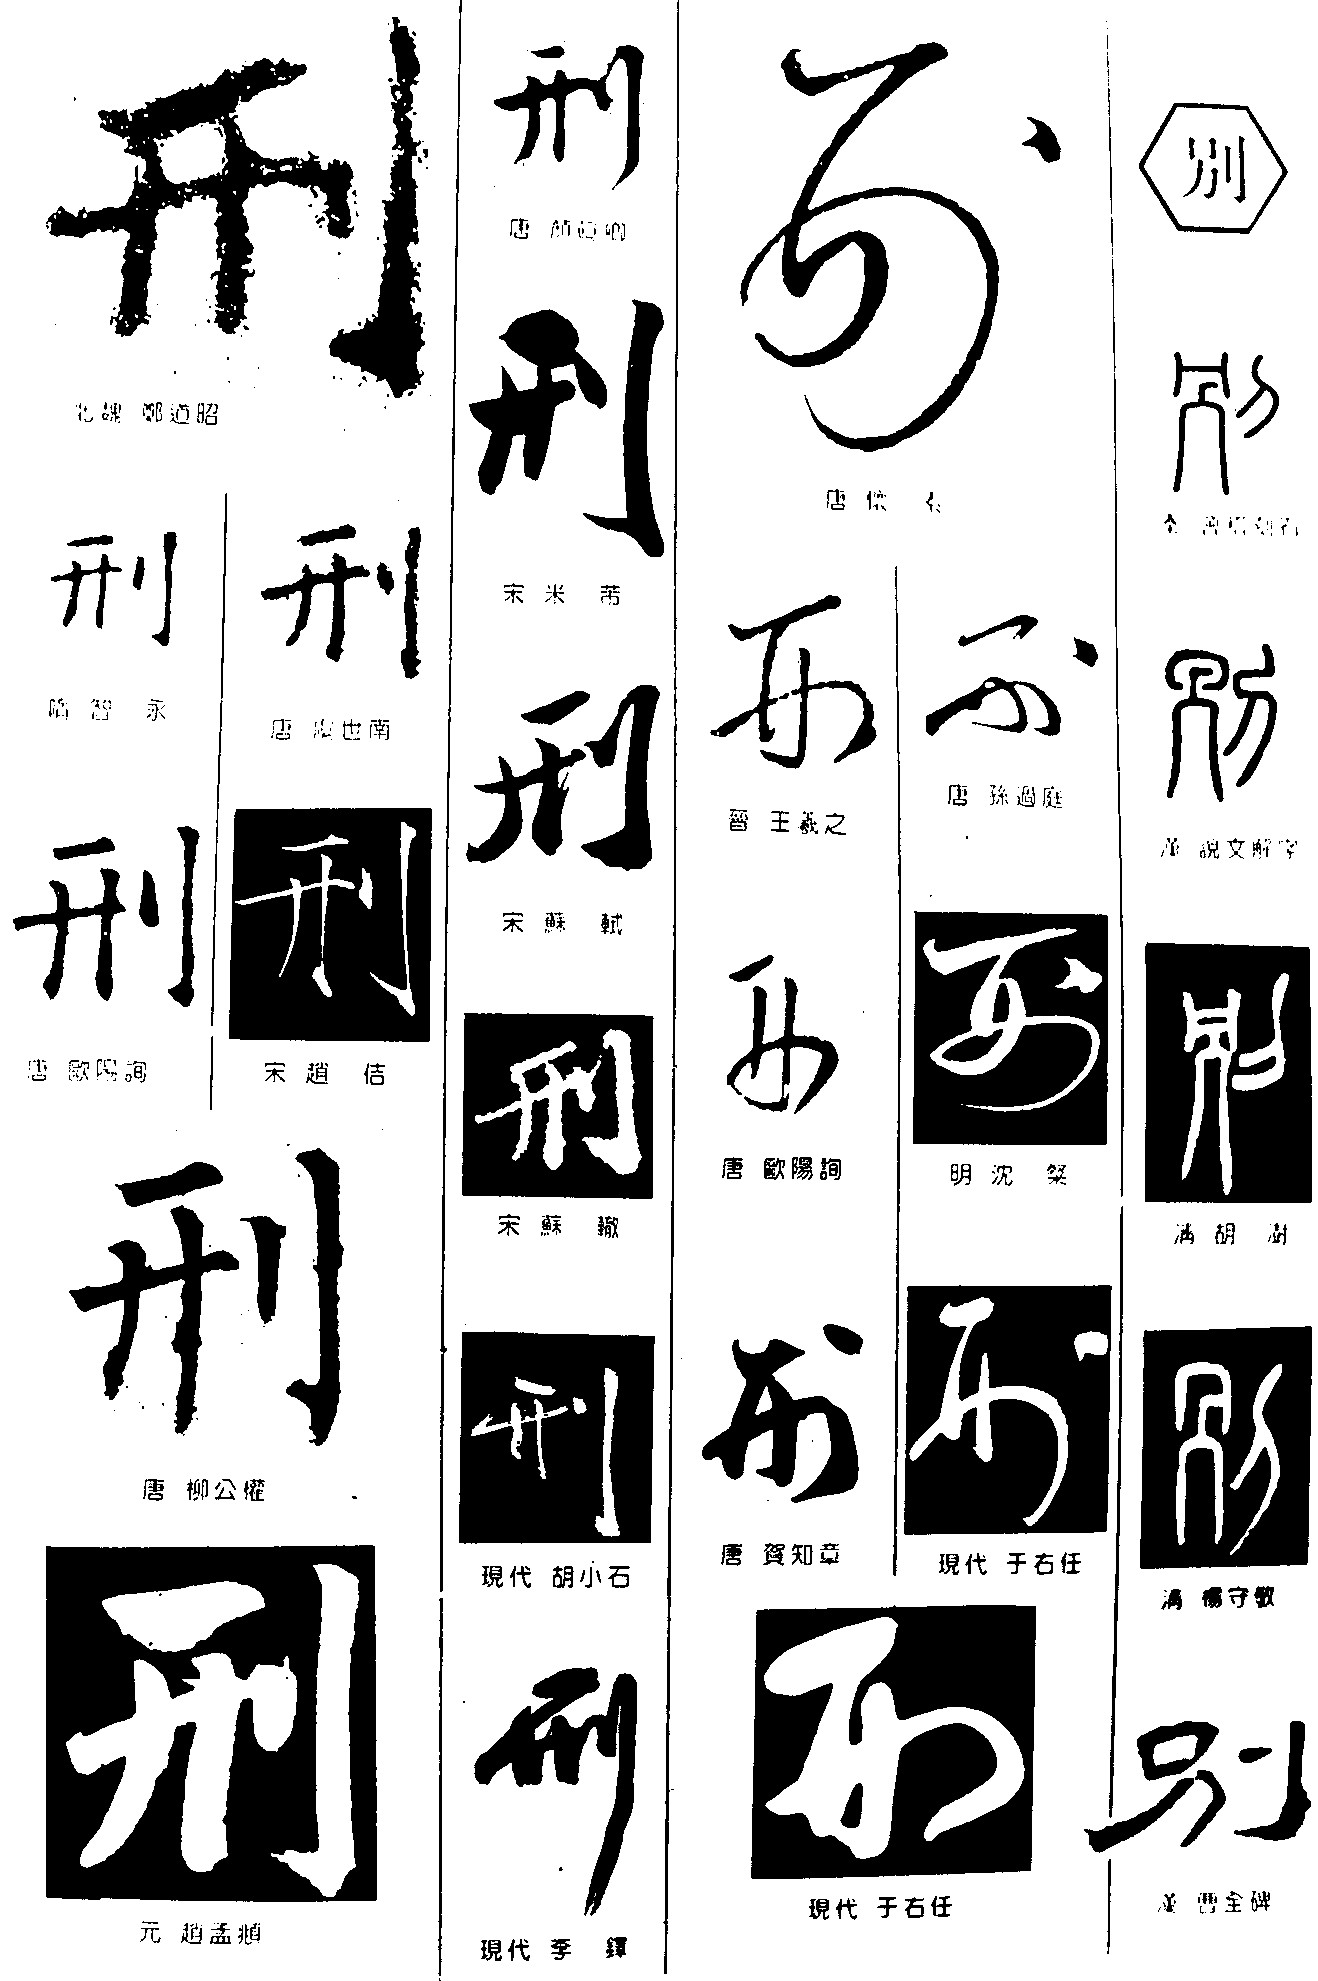 別
別
別
漢 說文解字
別
清 胡 澍
別
清 楊守敬
別
漢 曹全碑
刑
唐 懷 素
刑
唐 孫過庭
刑
明 沈 粲
刑
現代 于右任
刑
晉 王羲之
刑
唐 歐陽詢
刑
唐 賀知章
刑
現代 于右任
刑
唐 顏真卿
刑
宋 米 芾
刑
宋 蘇 軾
刑
宋 蘇 轍
刑
現代 胡小石
刑
現代 李 鐸
刑
北魏 鄭道昭
刑
唐 虞世南
刑
宋 趙 佶
刑
隋 智 永
刑
唐 歐陽詢
刑
唐 柳公權
刑
元 趙孟頫